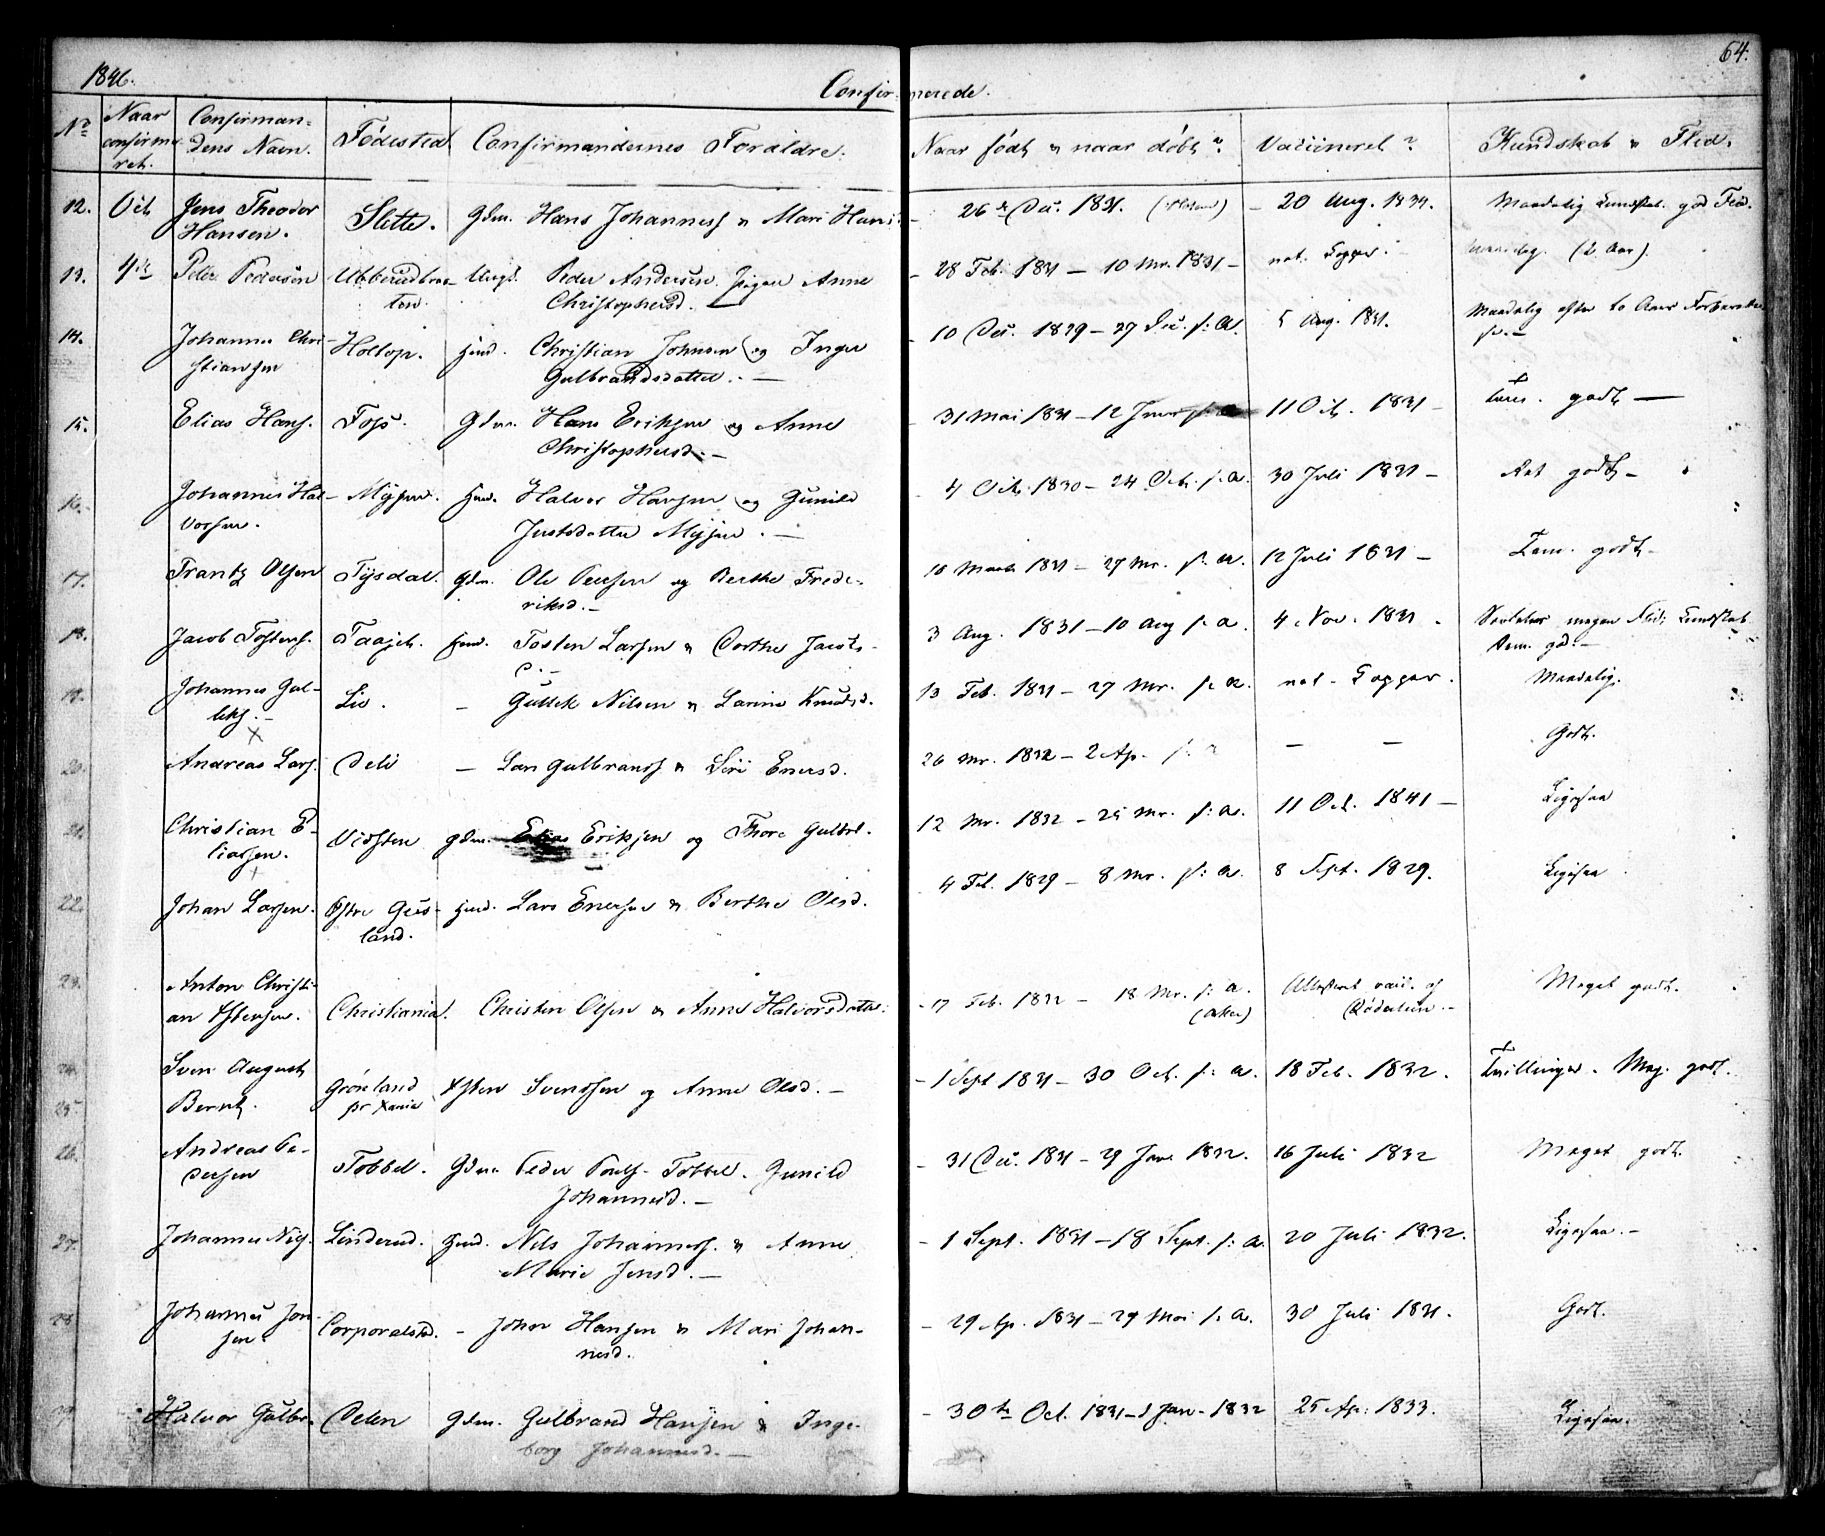 1846.
64.
Confirmerede.
No Naar confirmeret. Confirmandens Navn. Fødested Confirmandernes Forældre. Naar født & naar døbt? Vaccineret? Kundskab & Flid.
12. Oct Jens Theodor Slette. Gdm. Hans Johanness & Mari Hans 26 Dec. 1831. 20 Aug. 1834. Maadelig Kundskab. god Flid.
Hansen.
13. 4de Peder Pedersen Ungk. Peder Andersen. Pigen Anne 28 Feb. 1831 – 10 Mr. 1831 – nat. Kopper. (2 Aar).
Christophersd. –
14. Johannes Chri- Holtop. Huusd. Christian Johnsen og Inger 10 Dec. 1829 – 27 Dec. s: A. 5 Aug. 1831. Maadelig efter to Aars Forberedel
stiansen Gulbrandsdatter. – se. –
15. Elias Hans. Foss. Gdm. Hans Eriksen og Anne 31 Mai 1831 – 12 Juni s: a 11 Oct. 1831 – Tem. godt –
Christophersd. –
16. Johannes Hal- Mysen. Huusd. Halvor Hansen og Gunild 4 Oct. 1830 – 24 Oct. s: a. 30 Juli 1831 – Ret godt –
vorsen. Justsdatter Mysen. –
17. Frantz Olsen Tysdal. Gdm. Ole Pedersen og Berthe Frede- 18 Marts 1831 – 27 Mr. s: a. 12 Juli 1831 – Tem. godt –
riksd. –
18. Jacob Tostens. Taaje. Huusd. Tosten Larsen & Dorthe Jacobs- 3 Aug. 1831 – 10 Aug s: a. 4 Nov. 1831. megen Flid; Kundskab
d. – tem. god. –
19. Johannes Gul- Lie. – Gullek Nilsen & Larine Knudsd. 13 Feb. 1831 – 27 Mr. s: a. nat. Kopper. Maadelig.
leks. –
20. Andreas Lars. Deli – Lars Gulbrands & Siri Enersd. 26 Mr. 1832 – 2 Ap. s: a – – Godt.
21. Christian E- Vidsten gdm. Elias Eriksen og Thore Gulbr. 12 Mr. 1832 – 25 Mr. s: a. 11 Oct. 1841 – Ligesaa
liassen.
22. Johan Larsen. Østre Gus- Huusd. Lars Enersen & Berthe Olsd. 4 Feb. 1829 – 8 Mr. s: a. 8 Sept. 1829. Ligesaa
land.
23. Anton Christi- Christiania. Christen Olsen & Anne Halvorsdatter: 17 Feb. 1832 – 18 Mr. s: a. Attesteret vacc. af Meget godt.
an (Aker)
24. Sven August Grønland Svenssen og Anne Olsd. – 1 Sept 1831 – 30 Oct. s: a. 18 Feb. 1832. Tvillinger. Meg. godt.
25. Bernt. pr Xania
26. Andreas Pe- Tobbel. Gdm. Peder Pouls. Tobbel. Gunild 31 Dec. 1831 – 29 Jan. 1832. 16 Juli 1832 Meget godt.
dersen Johannesd. –
27. Johannes Nils. Linderud. Huusd. Nils Johanness. & Anne 1 Sept. 1831 – 18 Sept. s: a. 20 Juli 1832. Ligesaa. –
Marie Jensd. –
28. Johannes Jon- Corporalstd. – John Hansen & Mari Johan- 29 Ap. 1831 – 29 Mai s. a. 30 Juli 1831. Godt.
sen nesd.
29. Halvor Gulbr. Delen Gdm. Gulbrand Hansen & Inge- 30te Oct. 1831 – 1 Jan. 1832 25 Ap. 1833. Ligesaa.
borg Johannesd. –